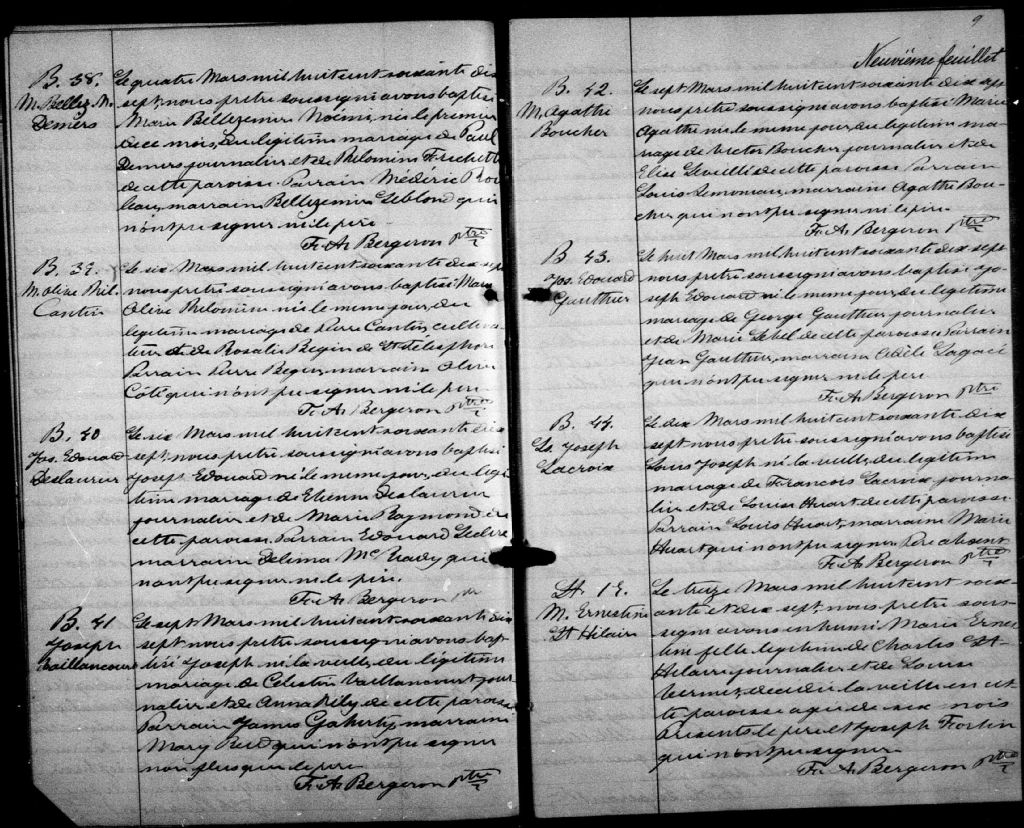 B. 38.
M. Bellez. N.
Demers
Le quatre Mars mil huit cent soixante dix
sept, nous prêtre soussigné avons baptisé
Marie Bellezemire Noémie, née le premier
de ce mois, du légitime mariage de Paul
Demers journalier et de Philomène Frechette
de cette paroisse. Parrain Médéric Rou
leau, marraine Bellezemire Leblond qui
n'ont pu signer ni le père.
F. A. Bergeron ptre
B. 39.
M. Olive Phil.
Cantin
Le six Mars mil huit cent soixante dix sept
nous prêtre soussigné avons baptisé Marie
Olive Philomène née le même jour, du
légitime mariage de Pierre Cantin, cultiva-
teur et de Rosalie Begin de St Télesphore
Parrain Pierre Begin, marraine Olive
Côté qui n'ont pu signer ni le père
F. A. Bergeron ptre
B. 40
Jos. Edouard
Deslaurier
Le six Mars mil huit cent soixante dix
sept, nous prêtre soussigné avons baptisé
Joseph Edouard né le même jour, du légi
time mariage de Etienne Deslaurier
journalier et de Marie Raymond de
cette paroisse. Parrain Edouard Leclerc
marraine Delima McCrady qui
n'ont pu signer ni le père.
F. A. Bergeron ptre
B. 41
Joseph
Vaillancourt
Le sept Mars mil huit cent soixante dix
sept, nous prêtre soussigné avons bap
tisé Joseph né la veille, du légitime
mariage de Celestin Vaillancourt jour
nalier et de Anna Rily de cette paroisse
Parrain James Gaherty, marraine
Mary Reed qui n'ont pu signer
non plus que le père
F. A. Bergeron ptre
9
Neuvième feuillet
B. 42.
M. Agathe
Boucher
Le sept Mars mil huit cent soixante dix sept
nous prêtre soussigné avons baptisé Marie
Agathe née le même jour, du légitime ma-
riage de Victor Boucher journalier et de
Elise Leveillé de cette paroisse Parrain
Louis Lemonieau, marraine Agathe Bou
cher qui n'ont pu signer ni le père.
F. A. Bergeron ptre
B 43.
Jos. Edouard
Gauthier
Le huit Mars mil huit cent soixante dix sept
nous prêtre soussigné avons baptisé Jo-
seph Edouard né le même jour, du légitime
mariage de George Gauthier journalier
et de Marie Lebel de cette paroisse Parrain
Jean Gauthier, marraine Adèle Lagacé
qui n'ont pu signer ni le père
F. A. Bergeron ptre
B. 44.
Ls. Joseph
Lacroix
Le dix Mars mil huit cent soixante dix
sept nous prêtre soussigné avons baptisé
Louis Joseph né la veille, du légitime
mariage de Francois Lacroix journa
lier et de Louise Huart de cette paroisse.
Parrain Louis Huart, marraine Marie
Huart qui n'ont pu signer Père absent
F. A. Bergeron ptre
M. Ernestine
St Hilaire
Le treize Mars mil huit cent soix-
ante et dix sept, nous prêtre sous-
signé avons inhumé Marie Ernes
tine fille légitime de Charles St
Hilaire journalier et de Louise
décédée la veille en cet
te paroisse agée de six mois
Présents le père et Joseph Fortin
qui n'ont pu signer
F. A. Bergeron ptre